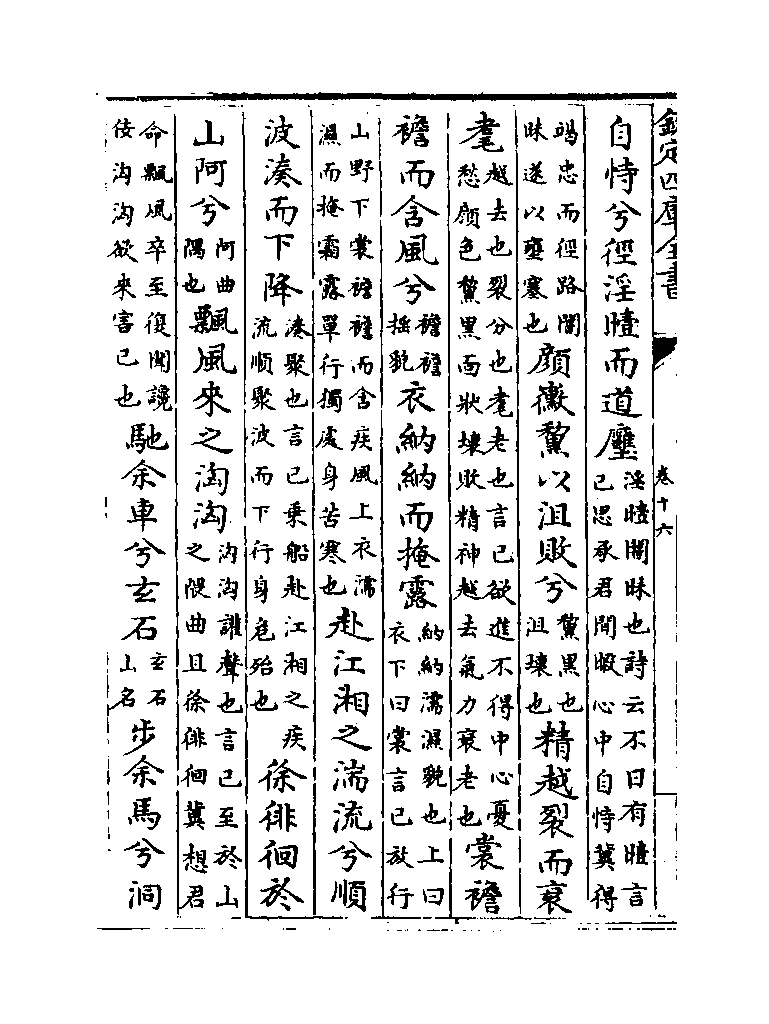 欽定四庫全書
卷十六
自恃兮徑淫曀而道壅淫曀闇昧也詩云不日有曀言己思承君間暇心中自恃冀得
竭忠而徑路闇昧遂以壅塞也顔黴黧以沮敗兮黧黑也沮壞也精越裂而衰
耄越去也裂分也耄老也言已欲進不得中心憂愁顔色黧黑面狀壊敗精神越去氣力衰老也裳襜
襜而含風兮襜襜揺貌衣納納而掩露納納濡濕貌也上曰衣下曰裳言已放行
山野下裳襜襜而含疾風上衣濡濕而掩霜露單行獨處身苦寒也赴江湘之湍流兮順
波湊而下降湊聚也言已乗船赴江湘之疾流順聚波而下行身危殆也徐徘徊於
山阿兮阿曲隅也飄風來之洶洶洶洶讙聲也言已至於山之隈曲且徐徘徊冀想君
命飄風卒至復聞讒佞洶洶欲來害已也馳余車兮玄石玄石山名步余馬兮洞